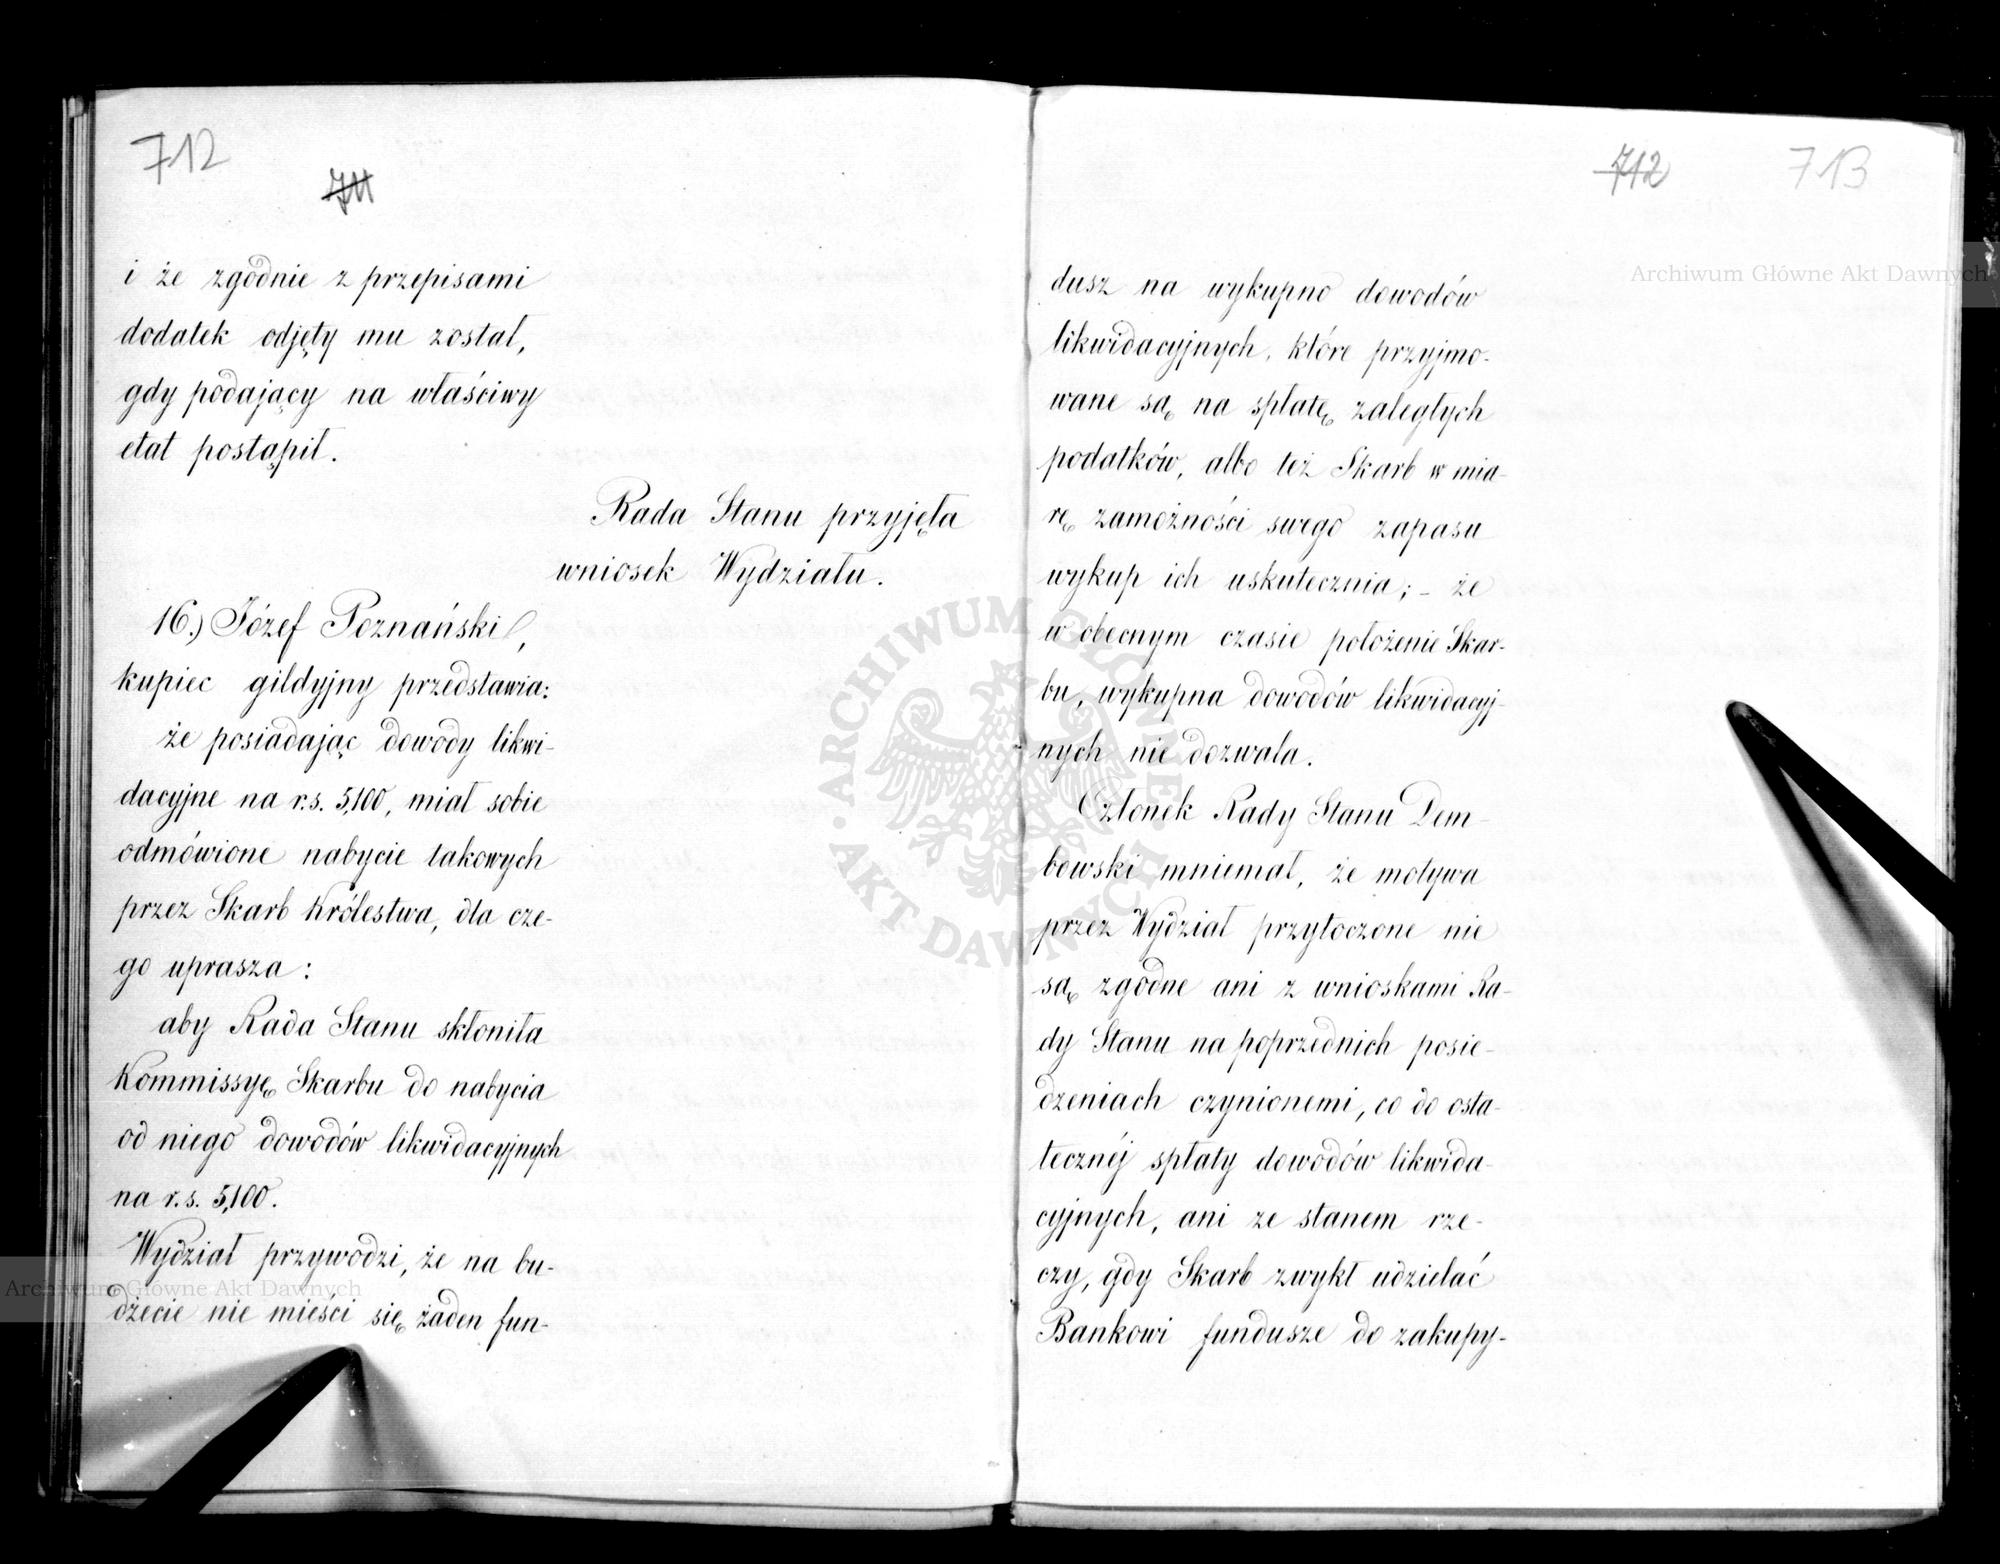 712
711
i że zgodnie z przepisami
dodatek odjęty mu został,
gdy podający na właściwy
etat postąpił.
Rada Stanu przyjęła
wniosek Wydziału.
16.) Józef Poznański,
kupiec gildyjny przedstawia:
że posiadając dowody likwi-
dacyjne na r.s. 5,100, miał sobie
odmówione nabycie takowych
przez Skarb Królestwa, dla cze-
go uprasza:
aby Rada Stanu skłoniła
Kommissyę Skarbu do nabycia
od niego dowodów likwidacyjnych
na r.s. 5,100.
Wydział przywodzi, że na bu-
dżecie nie mieści się żaden fun-
712 713
dusz na wykupno dowodów
likwidacyjnych, które przyjmo-
wane są na spłatę zaległych
podatków, albo też Skarb w mia-
rę zamożności swego zapasu
wykup ich uskutecznia; - że
w obecnym czasie położenie Skar-
bu, wykupna dowodów likwidacyj-
nych nie dozwala.
Członek Rady Stanu Dem-
bowski mniemał, że motywa
przez Wydział przytoczone nie
są zgodne ani z wnioskami Ra-
dy Stanu na poprzednich posie-
dzeniach czynionemi, co do osta-
tecznéj spłaty dowodów likwida-
cyjnych, ani ze stanem rze-
czy, gdy Skarb zwykł udzielać
Bankowi fundusze do zakupy-
Archiwum Główne Akt Dawnych
Archiwum Główne Akt Dawnych
ARCHIWUM GŁÓWNE
AKT DAWNYCH